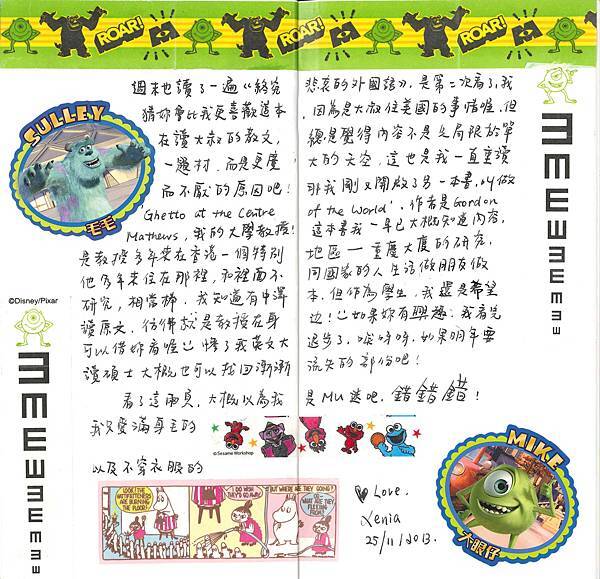 ROAR! ROAR! ROAR! ROAR!
SULLEY
毛毛
©Disney/Pixar
週末也讀了一遍《終究悲哀的外國語》，是第二次看了，我
猜妳會比我更喜歡這本，因為是大叔住美國的事情喔，但
在讀大叔的散文，總是覺得內容不是只局限於單
一題材，而是更廣大的天空，這也是我一直重讀
而不厭的原因吧！那我剛又開啟了另一本書，叫做
'Ghetto at the Centre of the World'，作者是Gordon
Mathews，我的大學教授！這本書我一早已大概知道內容，
是教授多年來在香港一個特別地區—重慶大廈的研究，
他多年來住在那裡，和裡面不同國籍的人生活做朋友做
研究，相當棒．我知道有中譯本，但作為學生，我還是希望
讀原文，彷彿就是教授在身邊！如果妳有興趣，我看完
可以借妳看喔 慘了我英文大退步了，嗚嗚嗚，如果明年要
讀碩士大概也可以找回漸漸流失的部份吧！
看了這兩頁，大概以為我是MU迷吧，錯錯錯！
我只愛滿身毛的
© Sesame Workshop
以及不穿衣服的
LOOK! THE HATTIFATTENERS ARE BURNING THE FLOOR!
I DO WISH THEY'D GO AWAY!
BUT WHERE ARE THEY GOING?
OR- WHAT ARE THEY FLEEING FROM?
♡ Love,
Xenia
25/11/2013.
MIKE
大眼仔